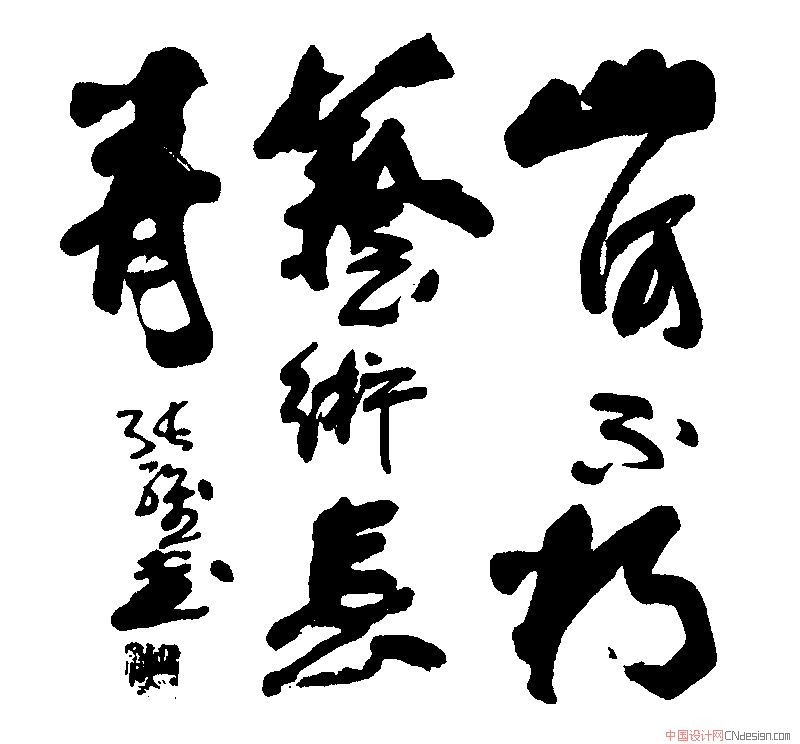 山河不朽
藝術長
青
张
中国设计网CNdesign.com